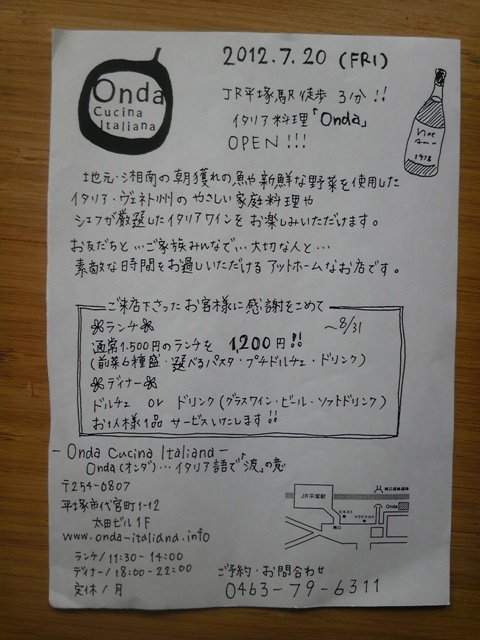 Onda
Cucina
Italiana
2012.7.20 (FRI)
JR平塚駅徒歩 3分!!
イタリア料理「Onda」
OPEN!!!
1978
地元・湘南の朝獲れの魚や新鮮な野菜を使用した
イタリア・ヴェネト州のやさしい家庭料理や
シェフが厳選したイタリアワインをお楽しみいただけます。
お友だちと…ご家族みんなで…大切な人と…
素敵な時間をお過しいただけるアットホームなお店です。
ご来店下さったお客様に感謝をこめて
ランチ ～8/31
通常1,500円のランチを 1200円!!
(前菜6種盛・選べるパスタ・プチドルチェ・ドリンク)
ディナー
ドルチェ or ドリンク(グラスワイン・ビール・ソフトドリンク)
お1人様1品 サービスいたします!!
- Onda Cucina Italiana -
Onda(オンダ)…イタリア語で「波」の意
〒254-0807
平塚市代官町1-12
太田ビル1F
www.onda-italiana.info
ランチ/11:30-14:00
ディナー/18:00-22:00
定休/月
JR平塚駅
南口
Onda
ご予約・お問合わせ
0463-79-6311